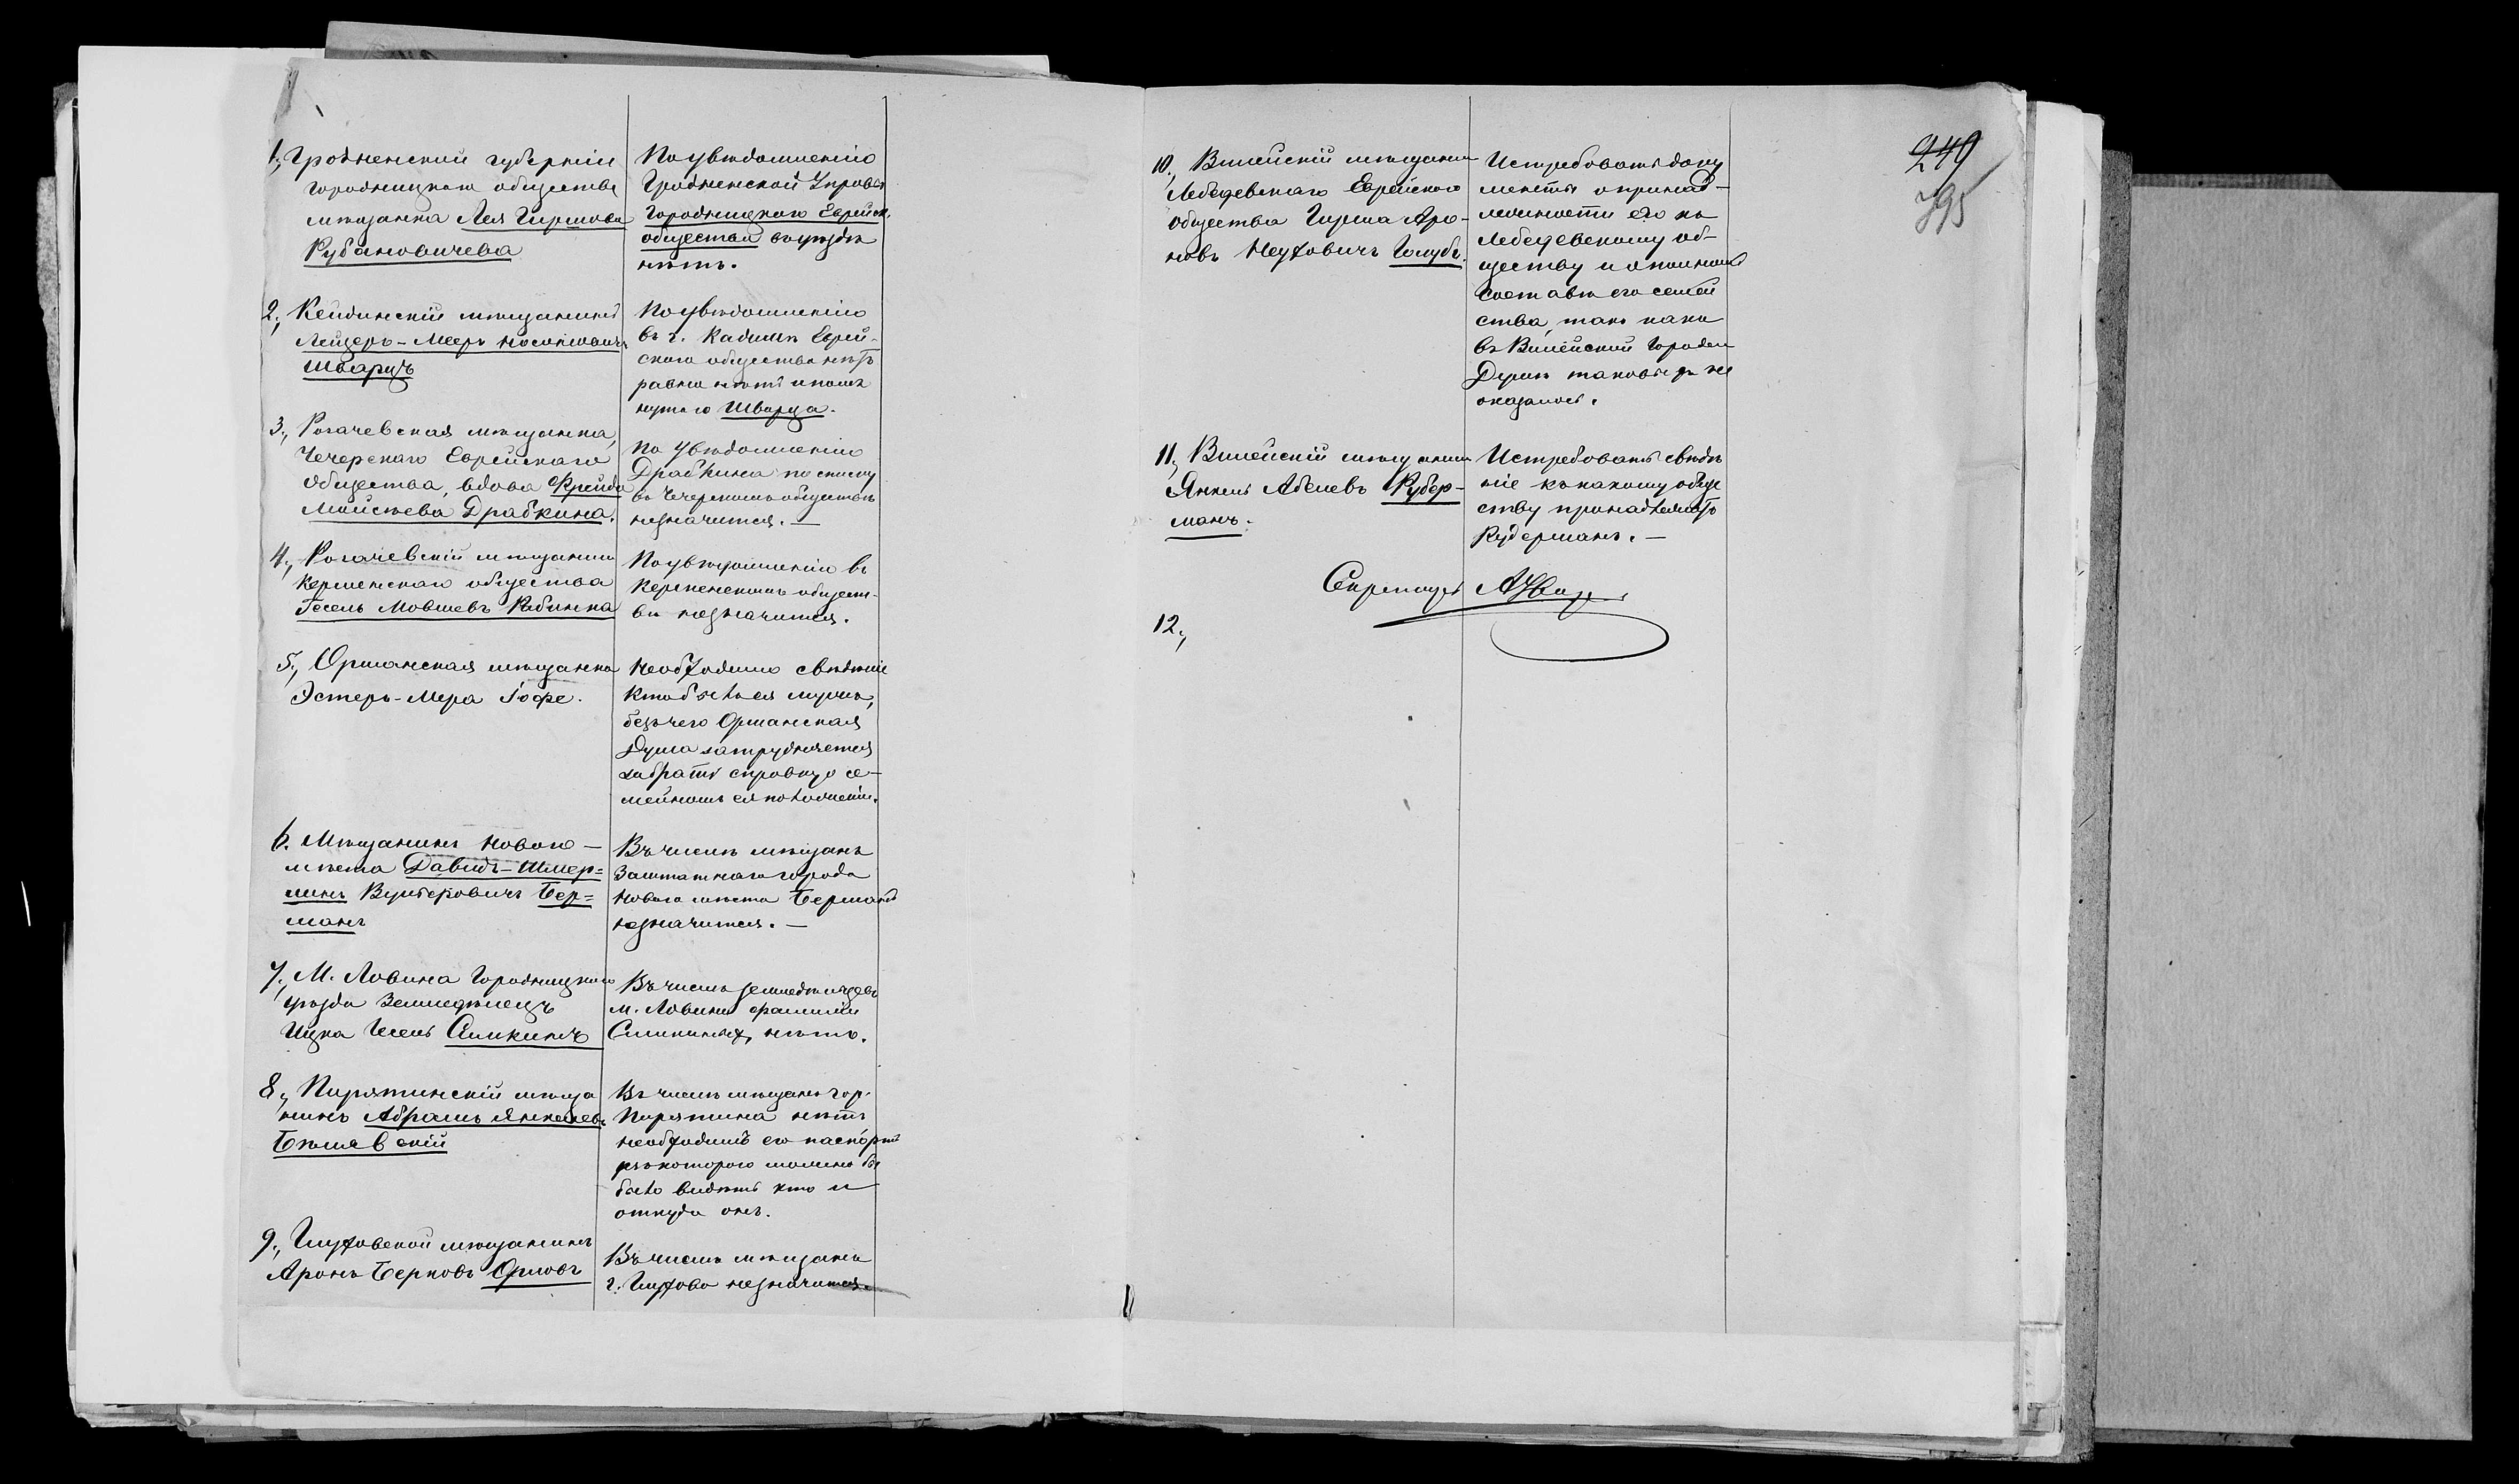 1., Гродненской губерніи
Городницкаго общества
мѣщанка Лея Гиршова
Рубановичева
По увѣдомленію
Гродненской Управы
Городницкаго Еврейск.
общества въ уѣздѣ
нѣтъ.
2., Кейданскій мѣщанинъ
Лейзеръ-Мееръ Носоновичъ
Шварцъ
По увѣдомленію
въ г. Кадинѣ Еврей-
скаго общества нѣтъ
равно нѣтъ и помя
нутаго Шварца.
3., Рогачевская мѣщанка,
Чечерскаго Еврейскаго
общества, вдова Фрейда
Моисѣева Драбкина.
По увѣдомленію
Драбкина по списку
въ Чечерскомъ обществѣ
незначится. —
4., Рогачевскій мѣщанинъ
общества
Гесель Мовшевъ Рабинка
По увѣдомленію въ
общест-
вѣ незначится.
5., Оршанская мѣщанка
Эстеръ-Мера Іофе.
Необходимо свѣдѣніе
кто былъ ея мужъ,
безъ чего Оршанская
Дума затрудняется
собрать справку о се-
мейномъ ея положеніи.
6. Мѣщанинъ Новаго-
мѣста Давидъ-Шмер-
минъ Вульфовичъ Бер=
манъ
Въ числѣ мѣщанъ
Заштатнаго города
Новаго мѣста Берманъ
незначится. —
7., М. Ловина Городницкаго
уѣзда Земледѣлецъ
Ицка Гесель Симкинъ
Въ числѣ земледѣльцевъ
м. Ловина фамиліи
Симкиныхъ нѣтъ.
8., Пирятинскій мѣща
нинъ Абрамъ Янкелевъ
Бѣлявскій
Въ числѣ мѣщанъ гор.
Пирятина нѣтъ
необходимъ его паспортъ
изъ котораго можно бы
было видѣть кто и
откуда онъ.
9., Глуховской мѣщанинъ
Аронъ Берковъ Орловъ
Въ числѣ мѣщанъ
г. Глухова незначится.
249
795
10., Вилейскій мѣщанинъ
Лебедевскаго Еврейскаго
общества Гирша Аро-
новъ Неуховичъ Голубъ.
Истребовать доку
менты о принад-
лежности его къ
Лебедевскому об-
ществу и о полномъ
составѣ его семей
ства, такъ какъ
въ Вилейской Городской
Думѣ таковыхъ не
оказалось.
11., Вилейскій мѣщанинъ
Янкель Абелевъ Рудер-
манъ.
Истребовать свѣдѣ
ніе къ какому обще
ству принадлежитъ
Рудерманъ. —
Секретарь
12.,